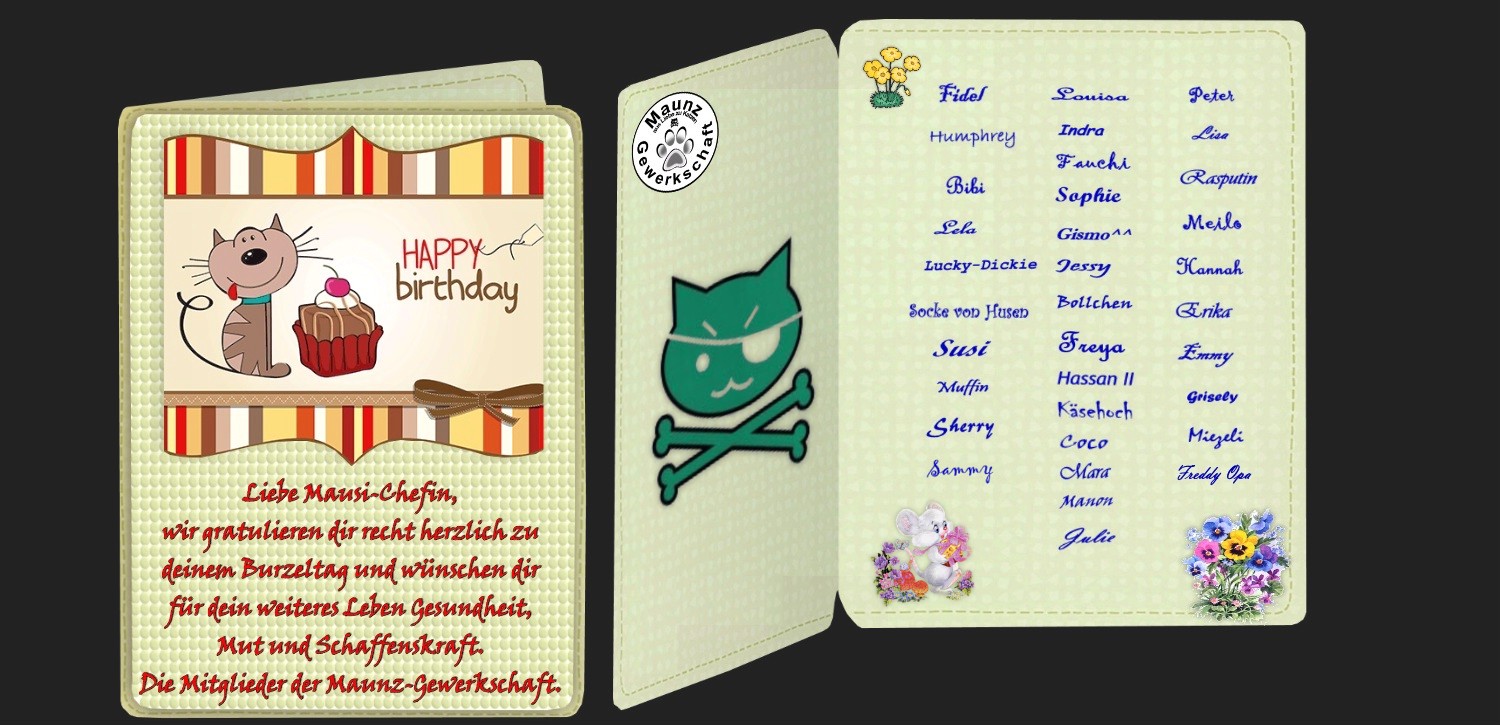 HAPPY
birthday
Liebe Mausi-Chefin,
wir gratulieren dir recht herzlich zu
deinem Burzeltag und wünschen dir
für dein weiteres Leben Gesundheit,
Mut und Schaffenskraft.
Die Mitglieder der Maunz-Gewerkschaft.
Maunz
Gewerkschaft
Fidel
Humphrey
Bibi
Lela
Lucky-Dickie
Socke von Husen
Susi
Muffin
Sherry
Sammy
Louisa
Indra
Fauchi
Sophie
Gismo^^
Jessy
Bollchen
Freya
Hassan II
Käsehoch
Coco
Mara
Manon
Julie
Peter
Lisa
Rasputin
Meilo
Hannah
Erika
Emmy
Grisely
Miezeli
Freddy Opa